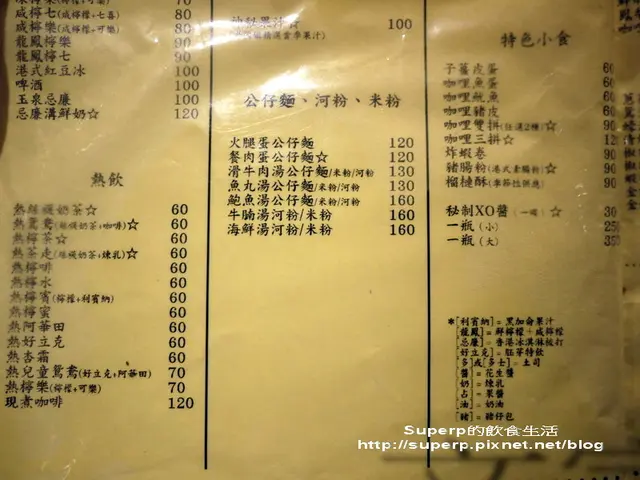 咸檸七(咸檸檬+七喜) 80
咸檸樂(咸檸檬+可樂) 80
龍鳳檸樂 90
龍鳳檸七 90
港式紅豆冰 100
啤酒 100
玉泉忌廉 100
忌廉溝鮮奶☆ 120
熱飲
熱絲襪奶茶☆ 60
熱鴛鴦(絲襪奶茶+咖啡)☆ 60
熱檸茶☆ 60
熱茶走(絲襪奶茶+煉乳)☆ 60
熱檸啡 60
熱檸水 60
熱檸賓(檸檬+利賓納) 60
熱檸蜜 60
熱阿華田 60
熱好立克 60
熱杏霜 60
熱兒童鴛鴦(好立克+阿華田) 70
熱檸樂(檸檬+可樂) 70
現煮咖啡 120
100
公仔麵、河粉、米粉
火腿蛋公仔麵 120
餐肉蛋公仔麵☆ 120
滑牛肉湯公仔麵/米粉/河粉 130
魚丸湯公仔麵/米粉/河粉 130
鮑魚湯公仔麵/米粉/河粉 160
牛腩湯河粉/米粉 160
海鮮湯河粉/米粉 160
特色小食
子薑皮蛋
咖哩魚蛋
咖哩魷魚
咖哩豬皮
咖哩雙拼(任選2種)☆
咖哩三拼☆
炸蝦卷
豬腸粉(港式素腸粉)☆
榴槤酥(季節性供應)
秘制XO醬(一碟)☆
一瓶(小)
一瓶(大)
*[利賓納]=黑加侖果汁
[龍鳳]=鮮檸檬+咸檸檬
[忌廉]=香港冰淇淋梳打
[好立克]=胚芽特飲
[多]或[多士]=土司
[醬]=花生醬
[奶]=煉乳
[占]=果醬
[油]=奶油
[豬]=豬仔包
Superp的飲食生活
http://superp.pixnet.net/blog